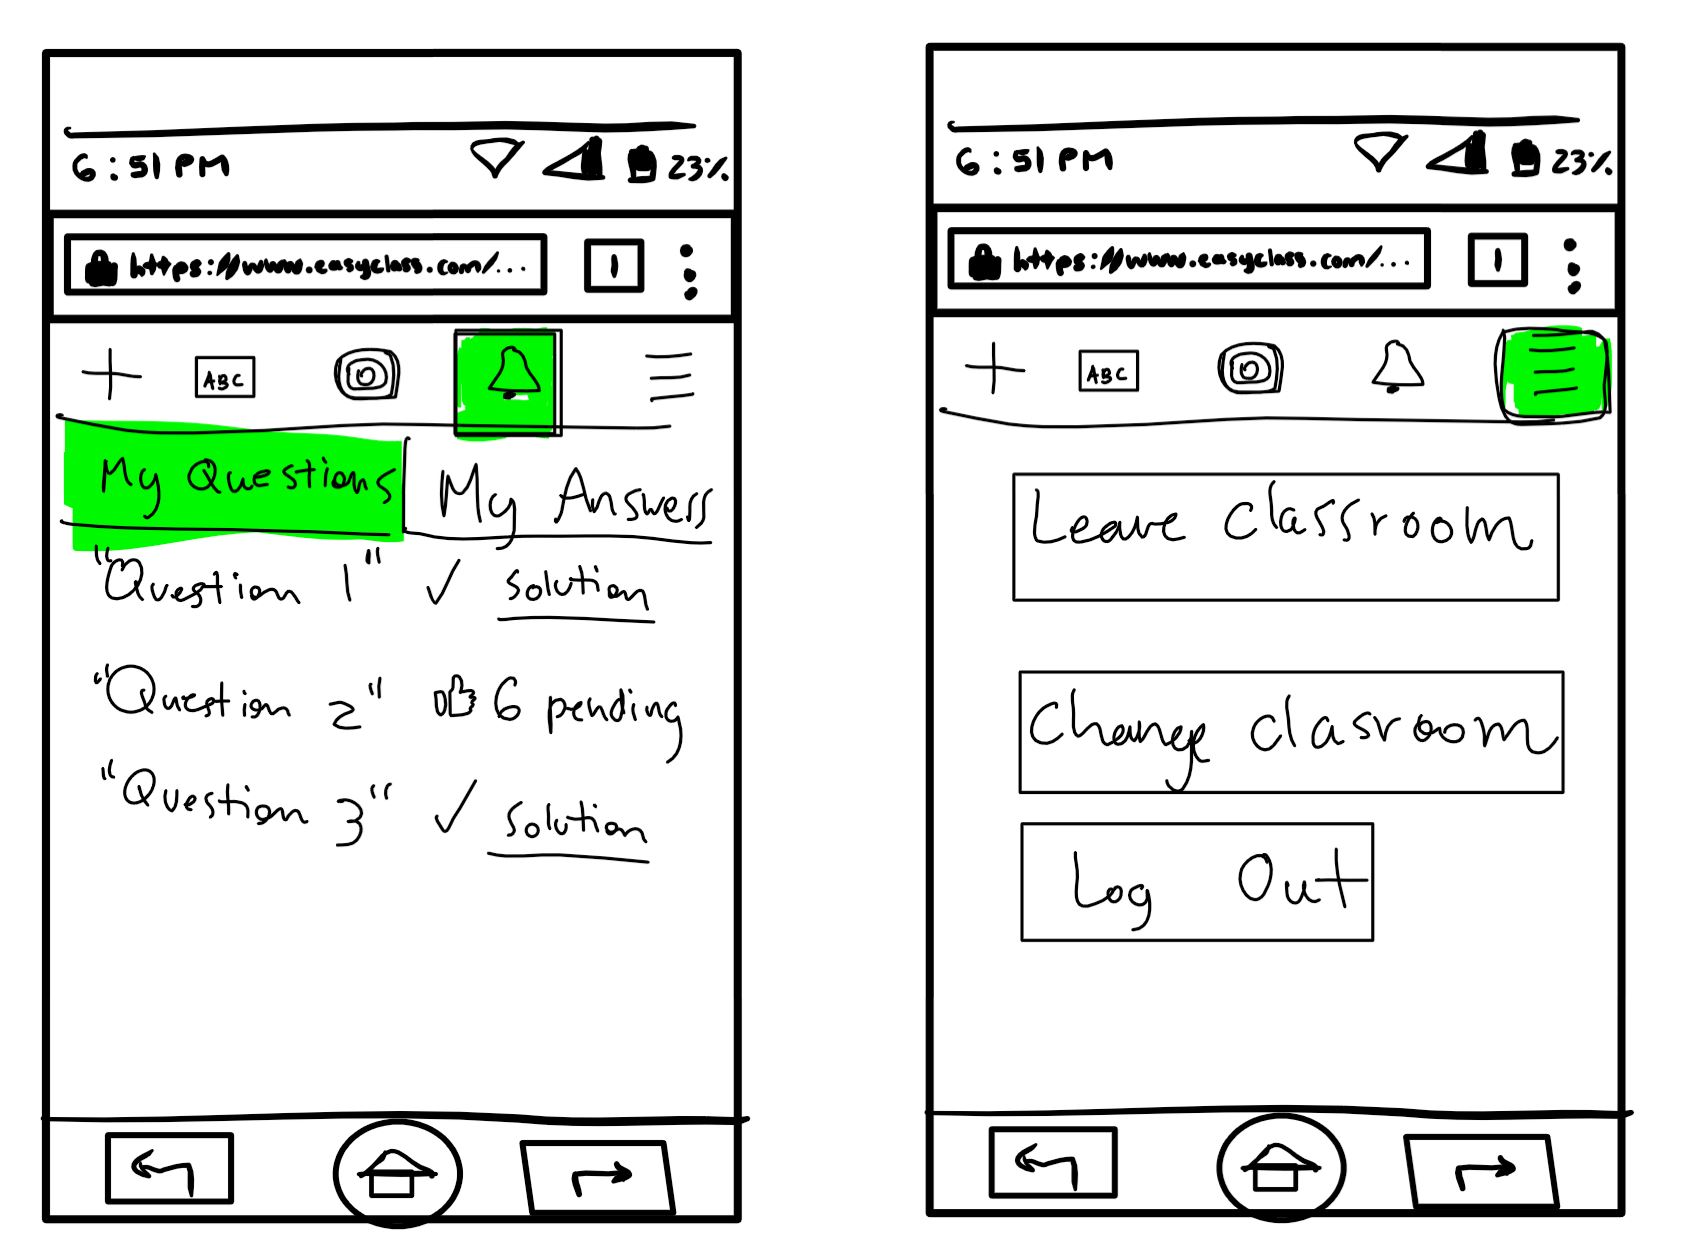 6:51 PM 23%
https://www.easyclass.com/... 1
ABC
My Questions My Answers
"Question 1" ✓ solution
"Question 2" 6 pending
"Question 3" ✓ solution
6:51 PM 23%
https://www.easyclass.com/... 1
ABC
Leave classroom
Change clasroom
Log Out